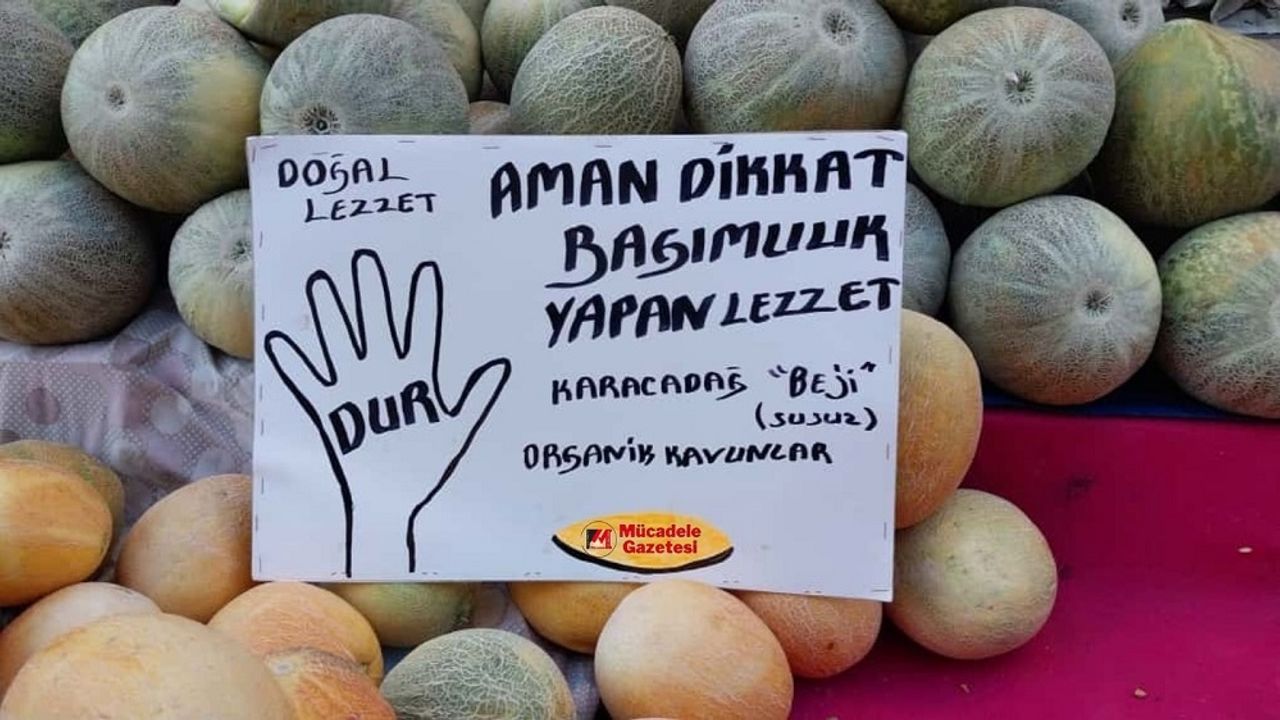 DOĞAL
LEZZET
DUR
AMAN DİKKAT
BAGIMLILIK
YAPAN LEZZET
KARACADAĞ "BEJİ"
(SUSUZ)
ORGANİK KAVUNLAR
Mücadele
Gazetesi